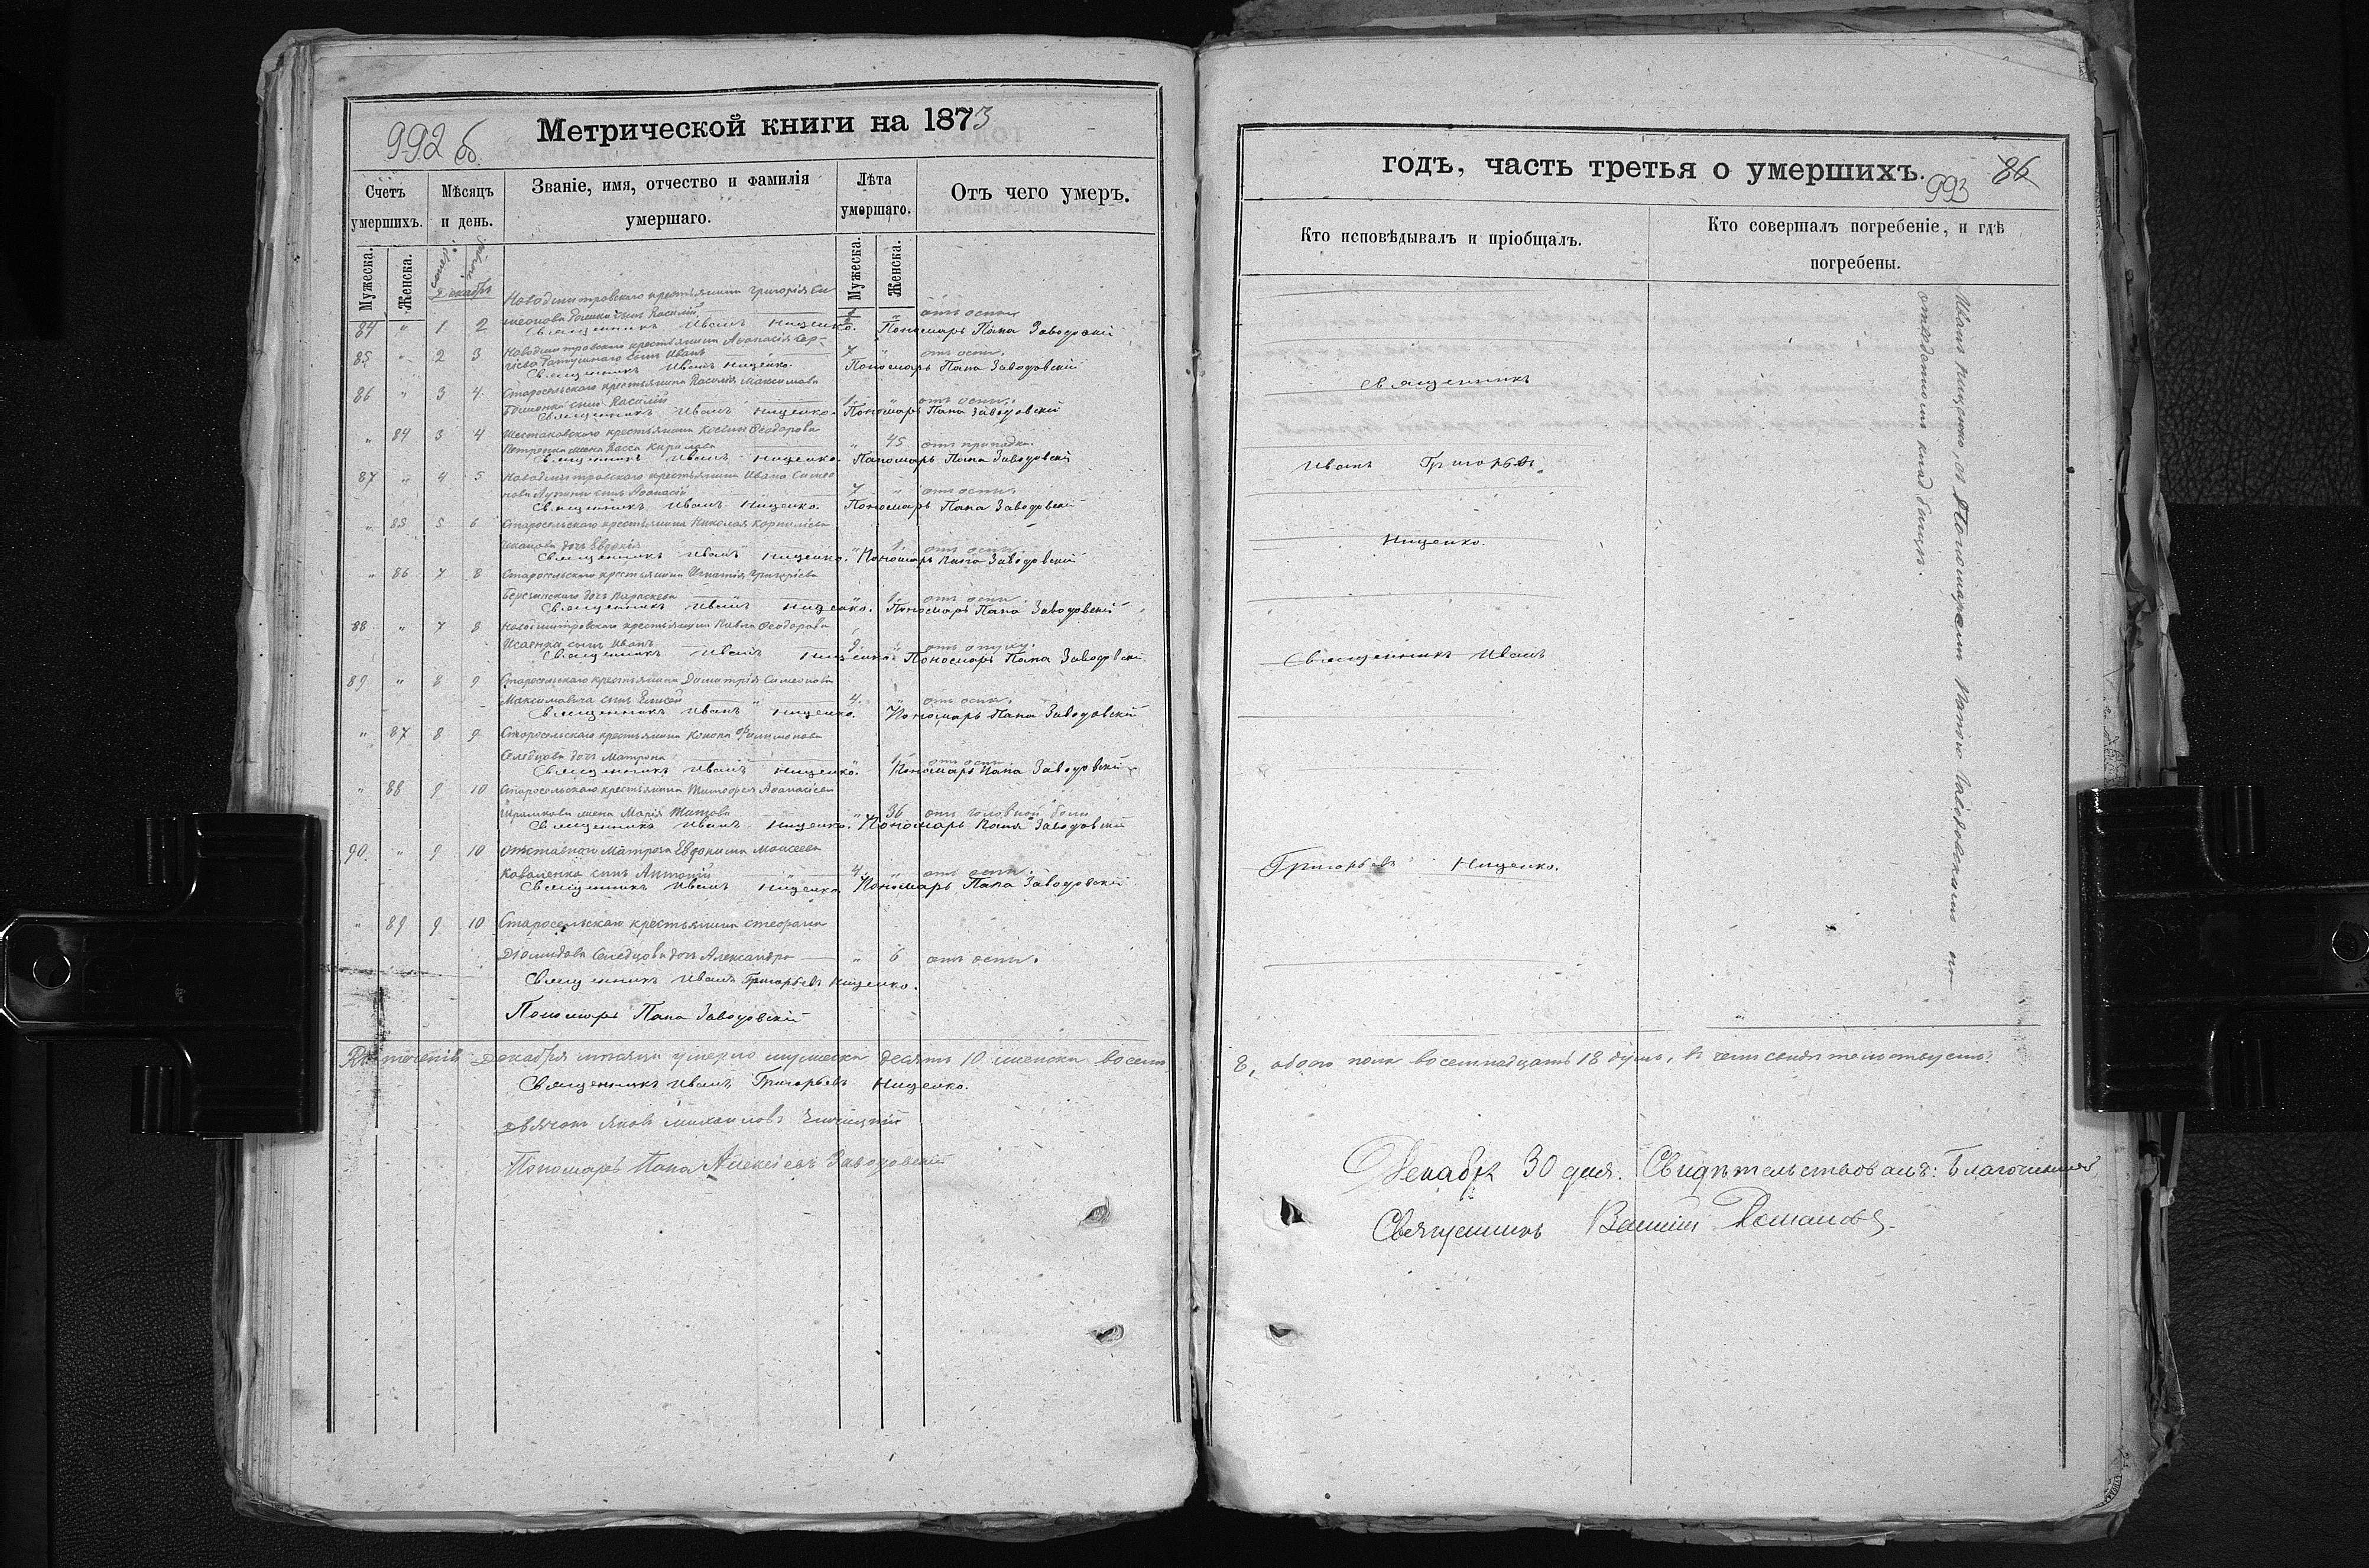 992 б.
Метрической книги на 1873
Счетъ умершихъ.
Мѣсяцъ и день.
Званіе, имя, отчество и фамилія умершаго.
Лѣта умершаго.
Отъ чего умеръ.
Мужеска.
Женска.
Декабрь
Мужеска.
Женска.
Новодмитровскаго крестьянина Григорія Си
84 " 1 2 сынъ Василій " отъ оспы
Священникъ Иванъ Нищенко. Пономарь Папа Заводовскій
Новодмитровскаго крестьянина Аѳанасія Сер-
85 " 2 3 гіева сынъ Иванъ 7 " отъ оспы.
Священникъ Иванъ Нищенко. Пономарь Папа Заводовскій
86 " 3 4 Старосельскаго крестьянина Василія Максимова
сынъ Василій 1. " отъ оспы.
Священникъ Иванъ Нищенко. Пономарь Папа Заводовскій
" 84 3 4 Шестаковскаго крестьянина Косьмы Ѳеодорова
Петренка жена Васса Карпова " 45 отъ припадка.
Священникъ Иванъ Нищенко. Пономарь Папа Заводовскій
87 " 4 5 Новодмитровскаго крестьянина Ивана Симео
нова сынъ Аѳанасій 7 " отъ оспы.
Священникъ Иванъ Нищенко. Пономарь Папа Заводовскій
" 85 5 6 Старосельскаго крестьянина Николая Корниліева
дочь Евдокія " 1. отъ оспы.
Священникъ Иванъ Нищенко. Пономарь Папа Заводовскій
" 86 7 8 Старосельскаго крестьянина Игнатія Григоріева
дочь Параскева " 1. отъ оспы.
Священникъ Иванъ Нищенко. Пономарь Папа Заводовскій
88 " 7 8 Новодмитровскаго крестьянина Павла Ѳеодорова
Исаенка сынъ Иванъ 9. " отъ
Священникъ Иванъ Нищенко Пономарь Папа Заводовскій
89 " 8 9 Старосельскаго крестьянина Димитрія Симеонова
Максимовича сынъ Елисей 4. " отъ оспы.
Священникъ Иванъ Нищенко. Пономарь Папа Заводовскій
" 87 8 9 Старосельскаго крестьянина Конона Филимонова
Селедцова дочь Матрона " 1 отъ оспы
Священникъ Иванъ Нищенко. Пономарь Папа Заводовскій
" 88 9 10 Старосельскаго крестьянина Тимоѳея Аѳанасіева
жена Марія " 36 отъ головной боли
Священникъ Иванъ Нищенко. Пономарь Папа Заводовскій
90. " 9 10 Отставнаго матроза Евфимія Моисеева
Коваленка сынъ Антоній 4. " отъ оспы.
Священникъ Иванъ Нищенко Пономарь Папа Заводовскій
" 89 9 10 Старосельскаго крестьянина Стефана
Діомидова Селедцова дочь Александра " 6 отъ оспы.
Священникъ Иванъ Григорьевъ Нищенко.
Пономарь Папа Заводовскій
Въ теченіи Декабря мѣсяца умерло мужеска десять 10 женска восемъ
Священникъ Иванъ Григорьевъ Нищенко.
Дьячокъ Яковъ Михаиловъ
Пономарь Папа Алексіевъ Заводовскій
годъ, часть третья о умершихъ.
993
86
Кто исповѣдывалъ и пріобщалъ.
Кто совершалъ погребеніе, и гдѣ погребены.
Священникъ
Иванъ Григорьевъ
Нищенко.
Священникъ Иванъ
Григорьевъ Нищенко.
Иванъ Нищенко, съ Пономаремъ Папою Заводовскимъ на
кладбищѣ.
8, обоего пола восемнадцать 18 душъ, въ чемъ свидѣтельствуемъ:
Декабря 30 дня. Свидѣтельствовалъ: Благочинный
Священникъ Романовъ.